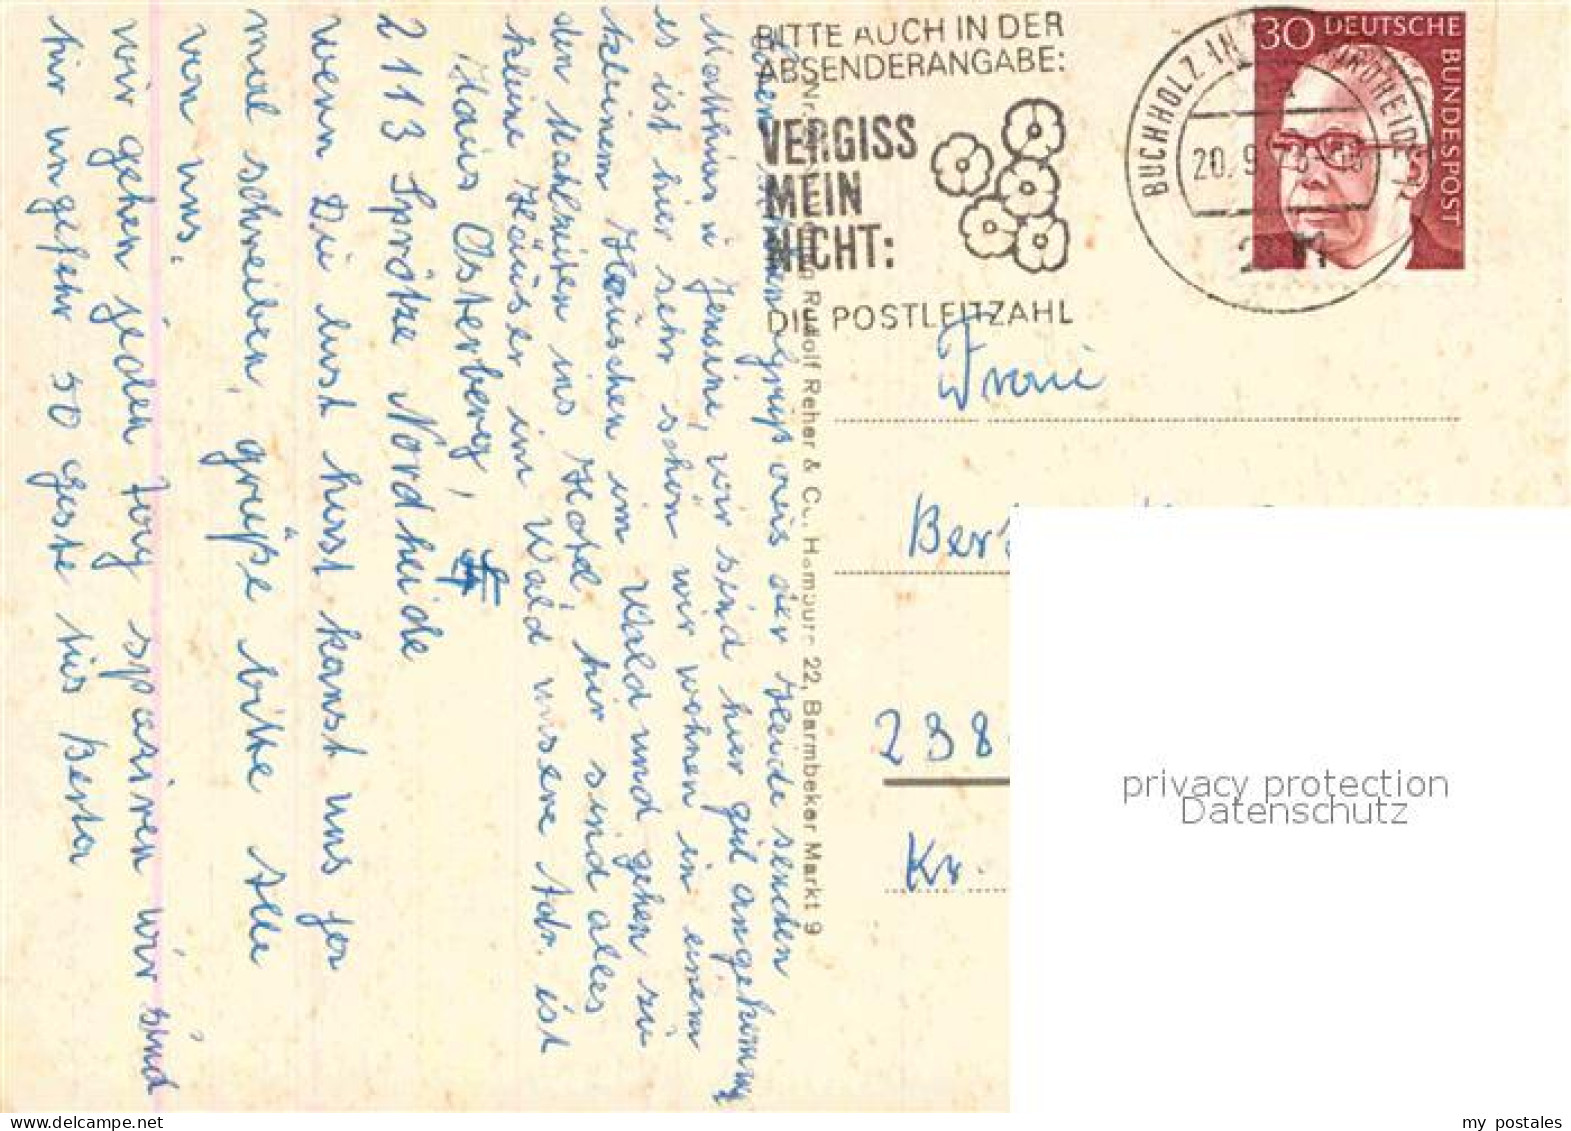 BITTE AUCH IN DER
ABSENDERANGABE:
VERGISS
MEIN
NICHT:
DIE POSTLEITZAHL
BUCHHOLZ IN DER NORDHEIDE
20. 9.
30 DEUTSCHE
BUNDESPOST
Gruß aus der Heide senden
Matthias u Jensine, wir sind hier gut angekommen
es ist hier sehr schön wir wohnen in einem
kleinem Häuschen im Wald und gehen zu
den Mahlzeiten ins Hotel, hir sind alles
kleine Häuser im Wald unsere Adr. ist
Haus Osterberg,
2113 Sprötze Nordheide
wenn Du lust hast kanst uns ja
mal schreiben, grüße bitte alle
von uns,
wir gehen jeden Tag spaziren wir sind
hir ungefähr 50 Gäste Berta
Rudolf Reher & Co., Hamburg 22, Barmbeker Markt 9
Frau
238
Kr.
privacy protection
Datenschutz
my postales